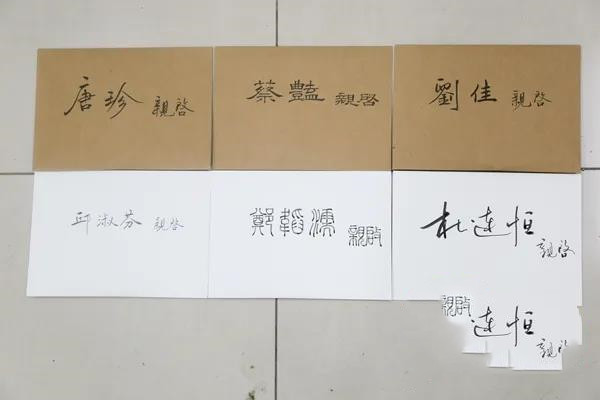 唐珍 親啓
蔡豔 親啓
劉佳 親啓
邱淑芬 親啓
鄭韜濡 親啟
杜連恒 親啓
親啟 連恒 親啓